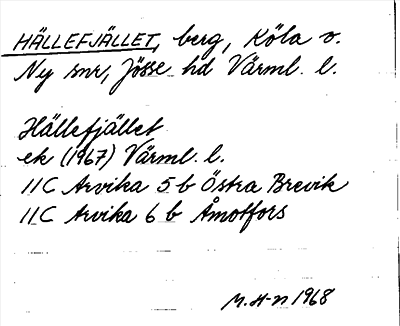 HÄLLEFJÄLLET, berg, Köla o.
Ny snr, Jösse hd Värml. l.
Hällefjället
ek (1967) Värml. l.
11C Arvika 5 b Östra Brevik
11C Arvika 6 b Åmotfors
M. H-n 1968